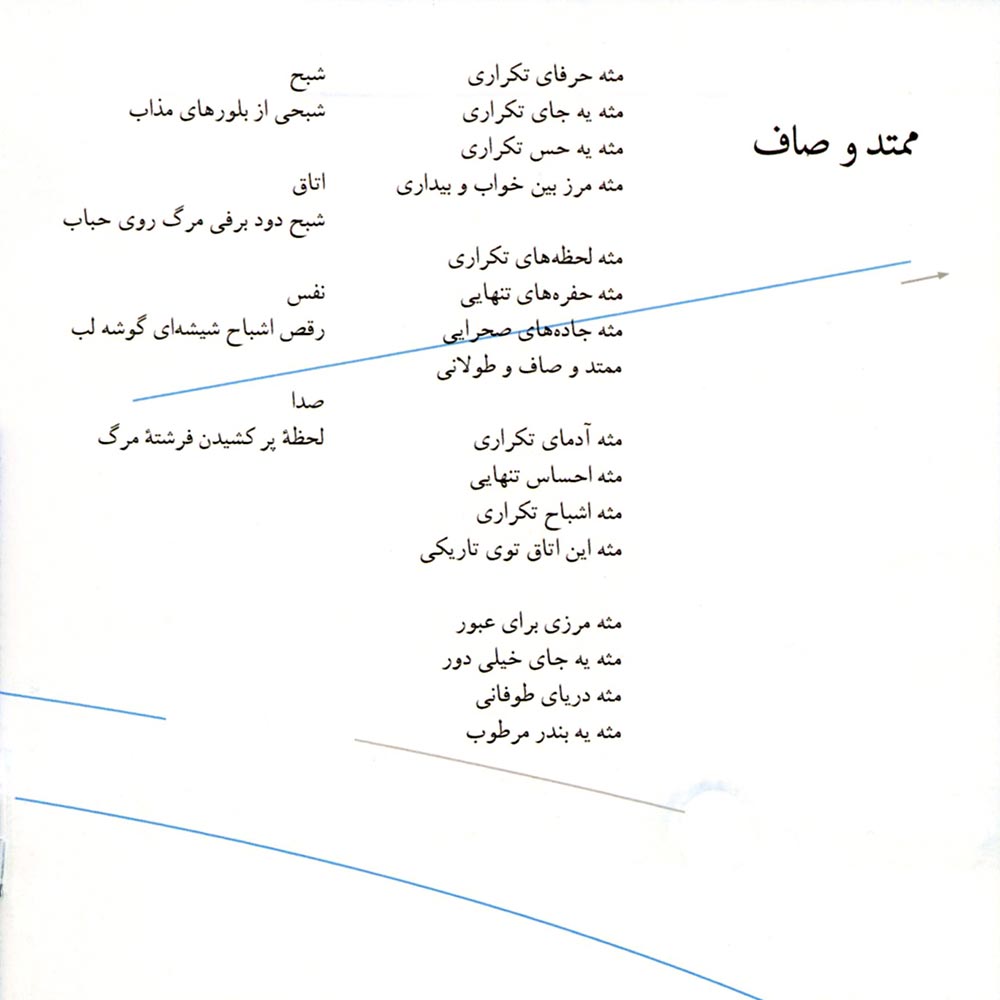 ممتد و صاف
مثه حرفای تکراری
مثه یه جای تکراری
مثه یه حس تکراری
مثه مرز بین خواب و بیداری
مثه لحظه‌های تکراری
مثه حفره‌های تنهایی
مثه جاده‌های صحرایی
ممتد و صاف و طولانی
مثه آدمای تکراری
مثه احساس تنهایی
مثه اشباح تکراری
مثه این اتاق توی تاریکی
مثه مرزی برای عبور
مثه یه جای خیلی دور
مثه دریای طوفانی
مثه یه بندر مرطوب
شبح
شبحی از بلورهای مذاب
اتاق
شبح دود برفی مرگ روی حباب
نفس
رقص اشباح شیشه‌ای گوشه لب
صدا
لحظهٔ پر کشیدن فرشتهٔ مرگ